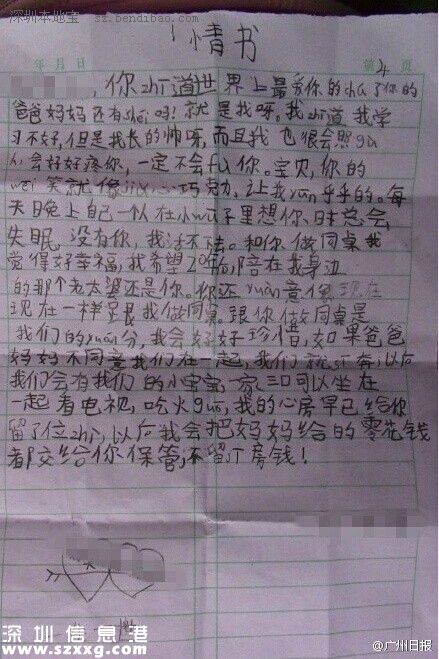 深圳本地宝 sz.bendibao.com
情书
年 月 日 第 4 页
，你zhī道世界上最爱你的chú了你的
爸爸妈妈还有shéi吗？就是我呀。我zhī道我学
习不好，但是我长的帅呀，而且我也很会照gù
人，会好好疼你，一定不会fù你。宝贝，你的
wēi笑就像 巧克力，让我yūn乎乎的。每
天晚上自己一个人在小wū子里想你，时总会
失眠，没有你，我活不下去。和你做同桌我
觉得好幸福，我希望20年后，陪在我身边
的那个老太婆还是你。你还yuàn意像现在
现在一样呈艮我做同桌。跟你做同桌是
我们的yuán分，我会好好珍惜，如果爸爸
妈妈不同意我们在一起，我们就 ，以后
我们会有我们的小宝宝，一家三口可以坐在
一起看电视，吃火guō，我的心房早已给你
留了位zhì，以后我会把妈妈给的零花钱
都交给你保管，不留丁房钱！
深圳信息港
www.szxxg.com
@广州日报